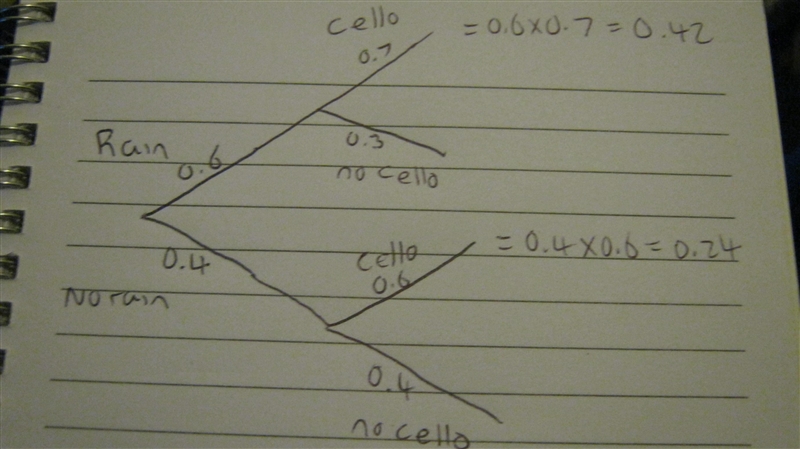 cello
0.7
= 0.6x0.7 = 0.42
Rain
0.6
0.3
no cello
0.4
No rain
cello
0.6
= 0.4x0.6 = 0.24
0.4
no cello